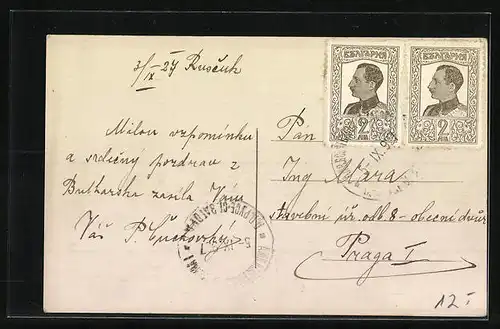 3/IX - 27 Rusčuk
Milou vzpomínku
a srdečný pozdrav z
Bulharska zasílá Vám
Váš P.
БЪЛГАРИЯ
2
ЛВА
БЪЛГАРИЯ
2
ЛВА
Pán
Ing Mára
stavební odb 8 - obecní dvůr
Praga I
12.-